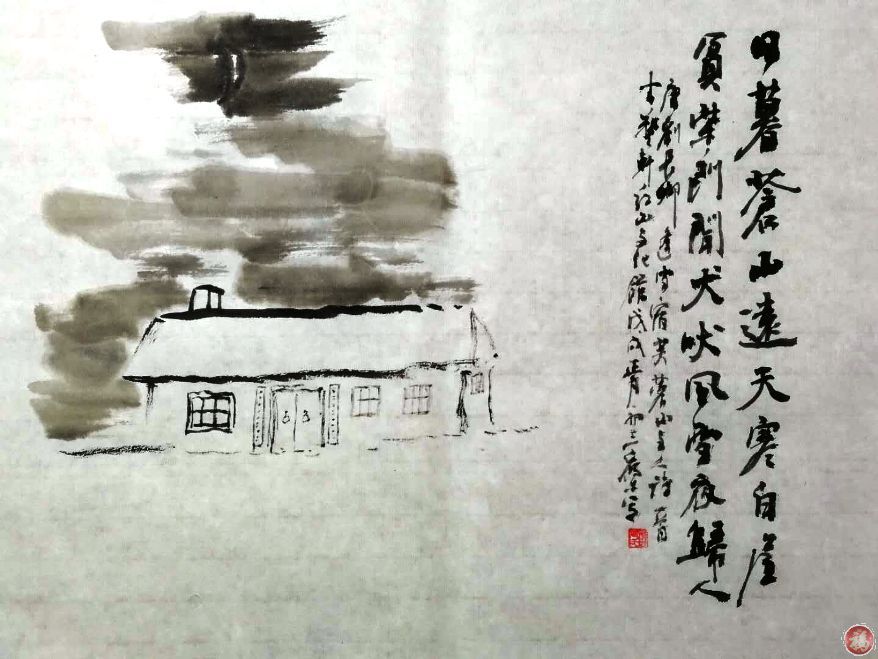 日暮蒼山遠天寒白屋
貧柴門聞犬吠風雪夜歸人
唐劉長卿逢雪宿芙蓉山主人詩
軒紅山文化館戊戌正月初三
福